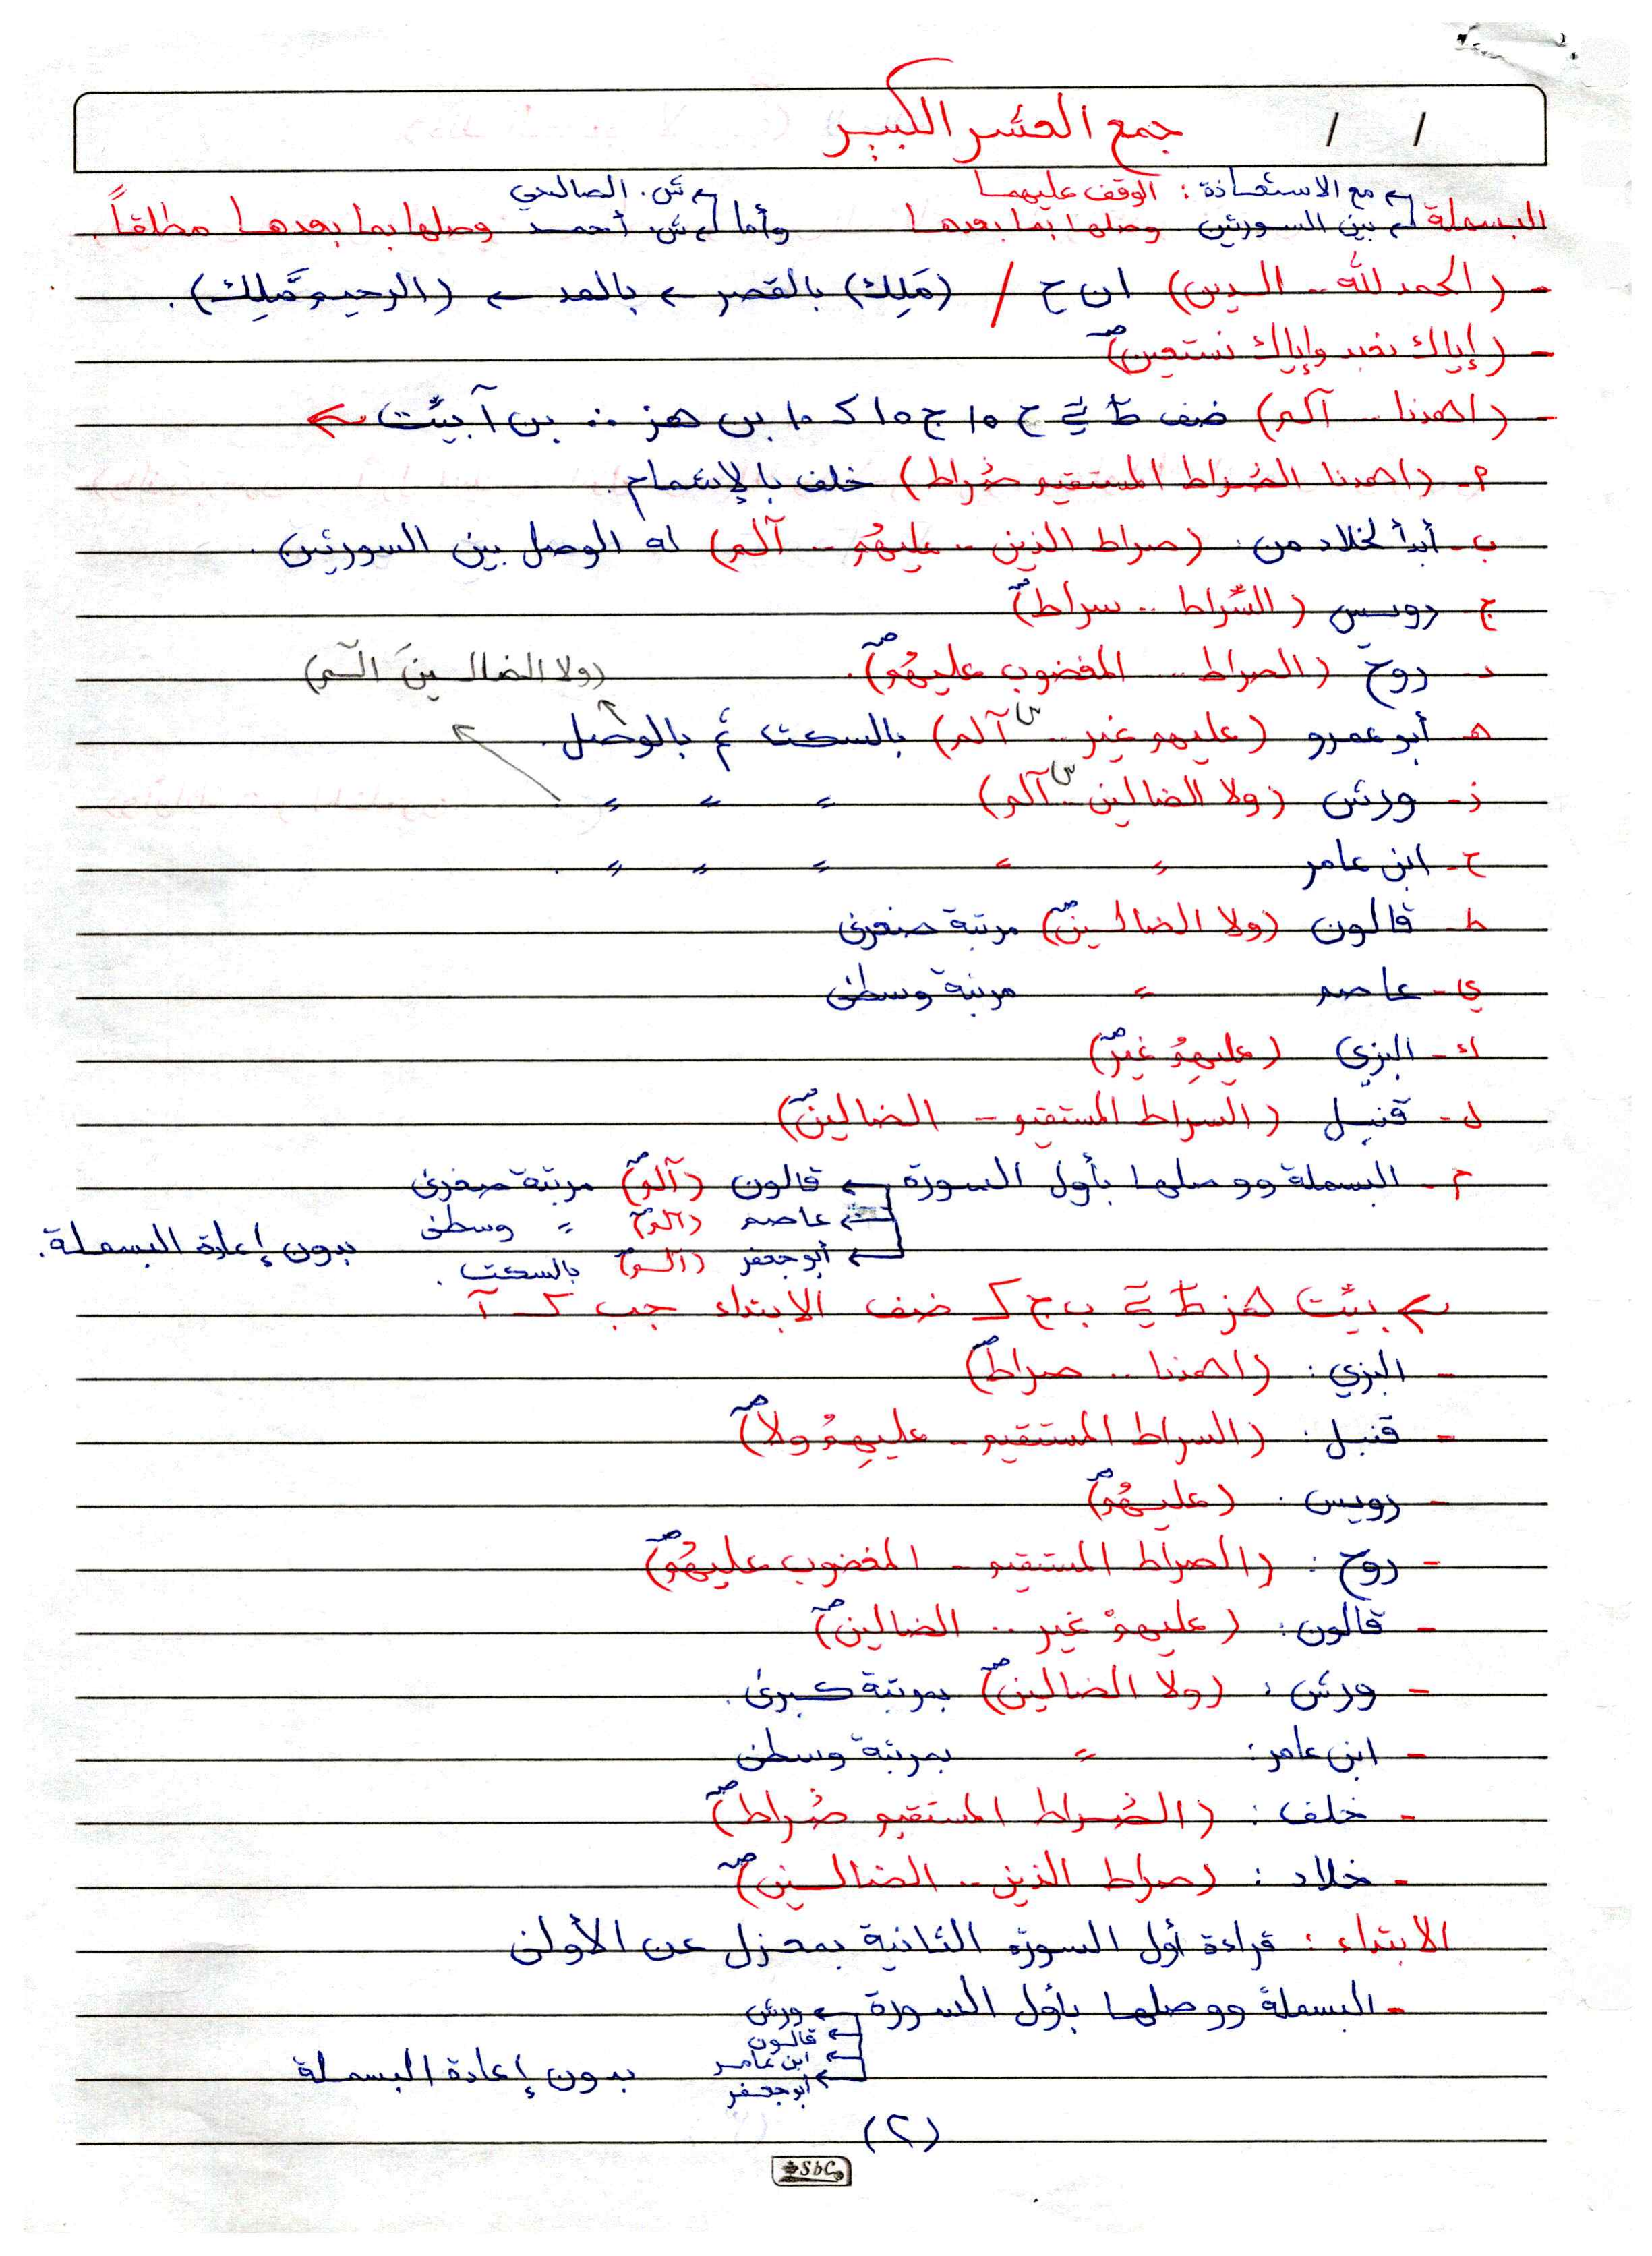 جمع العشر الكبير
/ /
البسملة مع الاستعاذة : الوقف عليهما ش. الصالحي
بين السورتين وصلها بما بعدها وأما ش. أحمد وصلها بما بعدها مطلقاً .
- (الحمد لله .. الدين) ان ح / (مَلِكِ) بالقصر بالمد (الرحيم مَّلِك) .
- (إياك نعبد وإياك نستعين) صـ
- (اهدنا .. آلم)
م- (اهدنا الصراط المستقيم صراط) خلف بالإشمام .
ب- أبدأ لخلاد من : (صراط الذين .. عليهُم .. آلم) له الوصل بين السورتين .
ج- رويس (السراط .. سراط) صـ
د- روح (الصراط .. المغضوب عليهُم) صـ . (ولا الضالينَ الٓـم)
هـ- أبو عمرو (عليهم غير .. س آلم) بالسكت ثم بالوصل .
ز- ورش (ولا الضالين .. س آلم) 〃 〃 〃
ح- ابن عامر 〃 〃 〃 〃 〃 .
ط- قالون (ولا الضالين) صـ مرتبة صغرى
ي- عاصم 〃 مرتبة وسطى
ك- البزي (عليهِمُ غير) صـ
ل- قنبل (السراط المستقيم - الضالين) صـ
م- البسملة ووصلها بأول السورة قالون (آلم) صـ مرتبة صغرى
عاصم (آلم) 〃 وسطى
أبو جعفر (آلم) بالسكت . بدون إعادة البسملة .
- البزي : (اهدنا .. صراط) صـ
- قنبل : (السراط المستقيم - عليهِمُ ولا) صـ
- رويس : (عليهُم) صـ
- روح : (الصراط المستقيم - المغضوب عليهُم) صـ
- قالون : (عليهمْ غير .. الضالين) صـ
- ورش : (ولا الضالين) صـ بمرتبة كبرى .
- ابن عامر : 〃 بمرتبة وسطى
- خلف : (الصراط المستقيم صراط) صـ
- خلاد : (صراط الذين .. الضالين) صـ
الابتداء : قراءة أول السورة الثانية بمعزل عن الأولى
- البسملة ووصلها بأول السورة ورش
قالون
ابن عامر
أبو جعفر بدون إعادة البسملة
(٢)
SbC